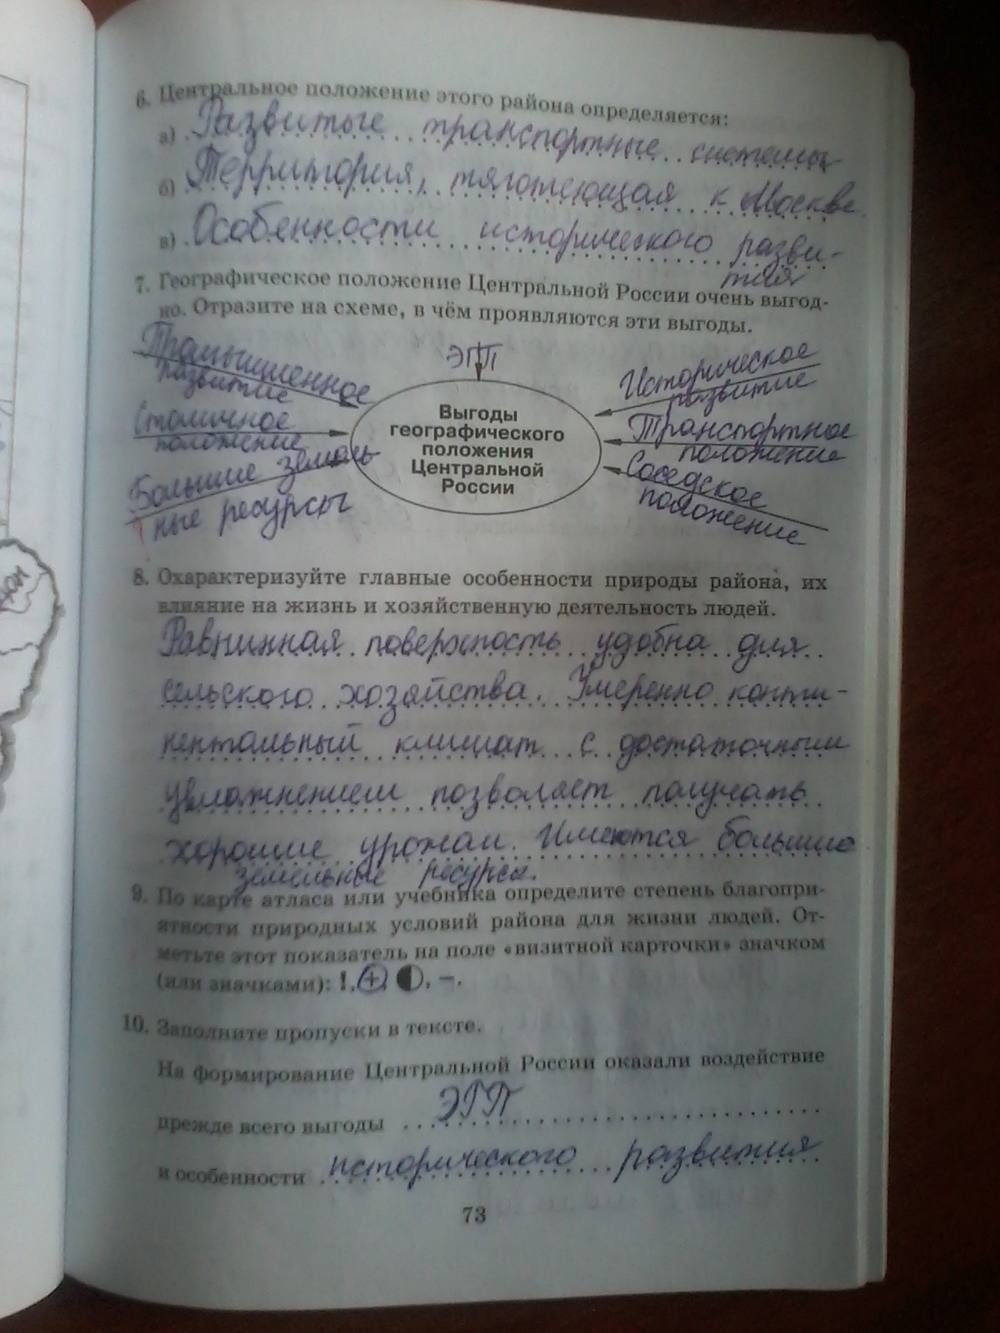 6. Центральное положение этого района определяется:
а) Развитые транспортные системы
б) Территория, тяготеющая к Москве.
в) Особенности исторического разви-
тия
7. Географическое положение Центральной России очень выгод-
но. Отразите на схеме, в чём проявляются эти выгоды.
Промышленное
развитие
Столичное
положение
Большие земель-
ные ресурсы
ЭГП
Выгоды
географического
положения
Центральной
России
Историческое
развитие
Транспортное
положение
Соседское
положение
8. Охарактеризуйте главные особенности природы района, их
влияние на жизнь и хозяйственную деятельность людей.
Равнинная поверхность удобна для
сельского хозяйства. Умеренно конти-
нентальный климат с достаточным
увлажнением позволяет получать
хорошие урожаи. Имеются большие
земельные ресурсы.
9. По карте атласа или учебника определите степень благопри-
ятности природных условий района для жизни людей. От-
метьте этот показатель на поле «визитной карточки» значком
(или значками): !, +, ◐, –.
10. Заполните пропуски в тексте.
На формирование Центральной России оказали воздействие
прежде всего выгоды ЭГП
и особенности исторического развития
73